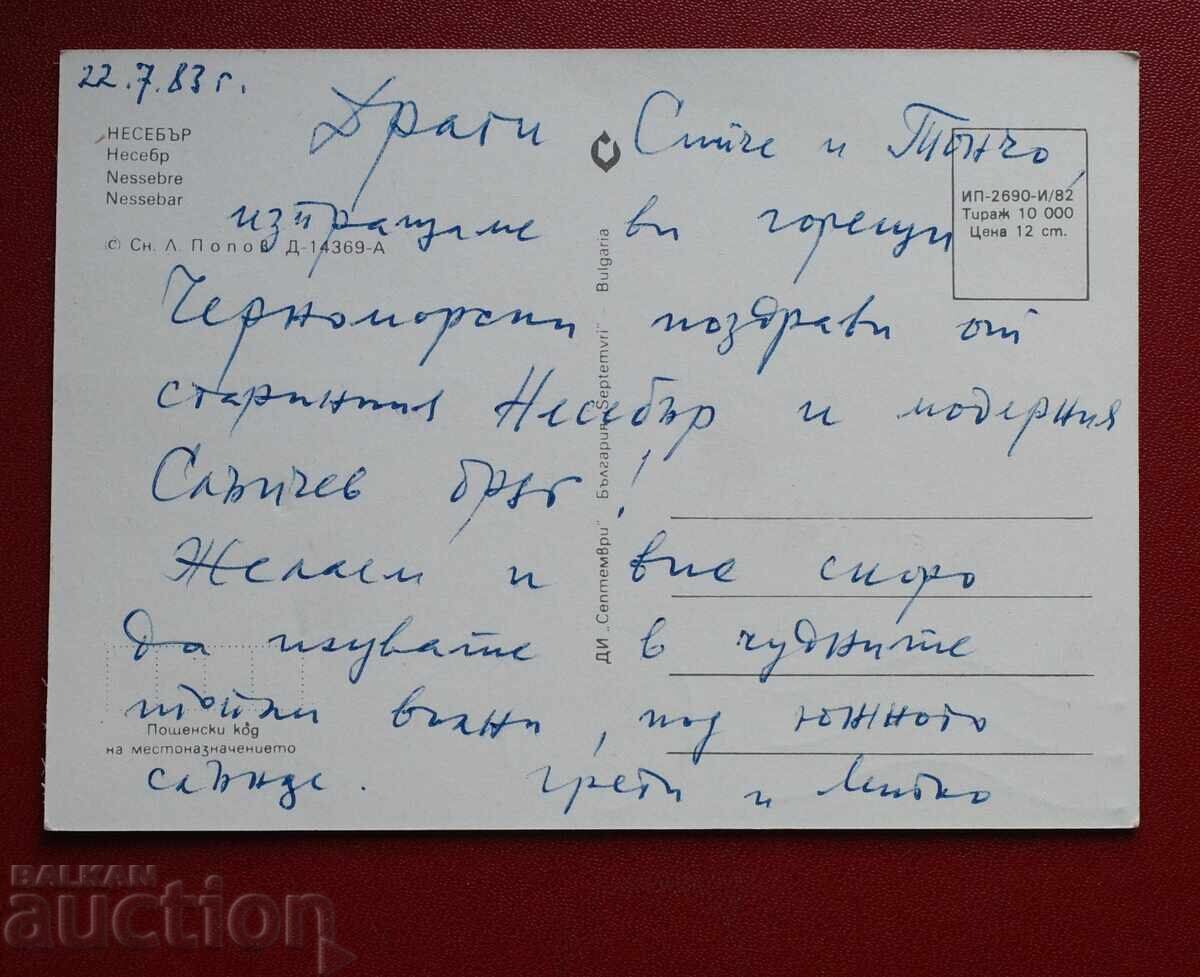 22.7.83 г.
НЕСЕБЪР
Несебр
Nessebre
Nessebar
© Сн. Л. Попов Д-14369-А
ИП-2690-И/82
Тираж 10 000
Цена 12 ст.
ДИ „Септември" България „Septemvri" - Bulgaria
Драги и Тончо,
изпращаме ви горещи
Черноморски поздрави от
старинния Несебър и модерния
Слънчев бряг!
Желаем и вие скоро
да плувате в чудните
топли вълни, под южното
слънце. Грети и Митко
Пощенски код
на местоназначението
BALKAN
auction